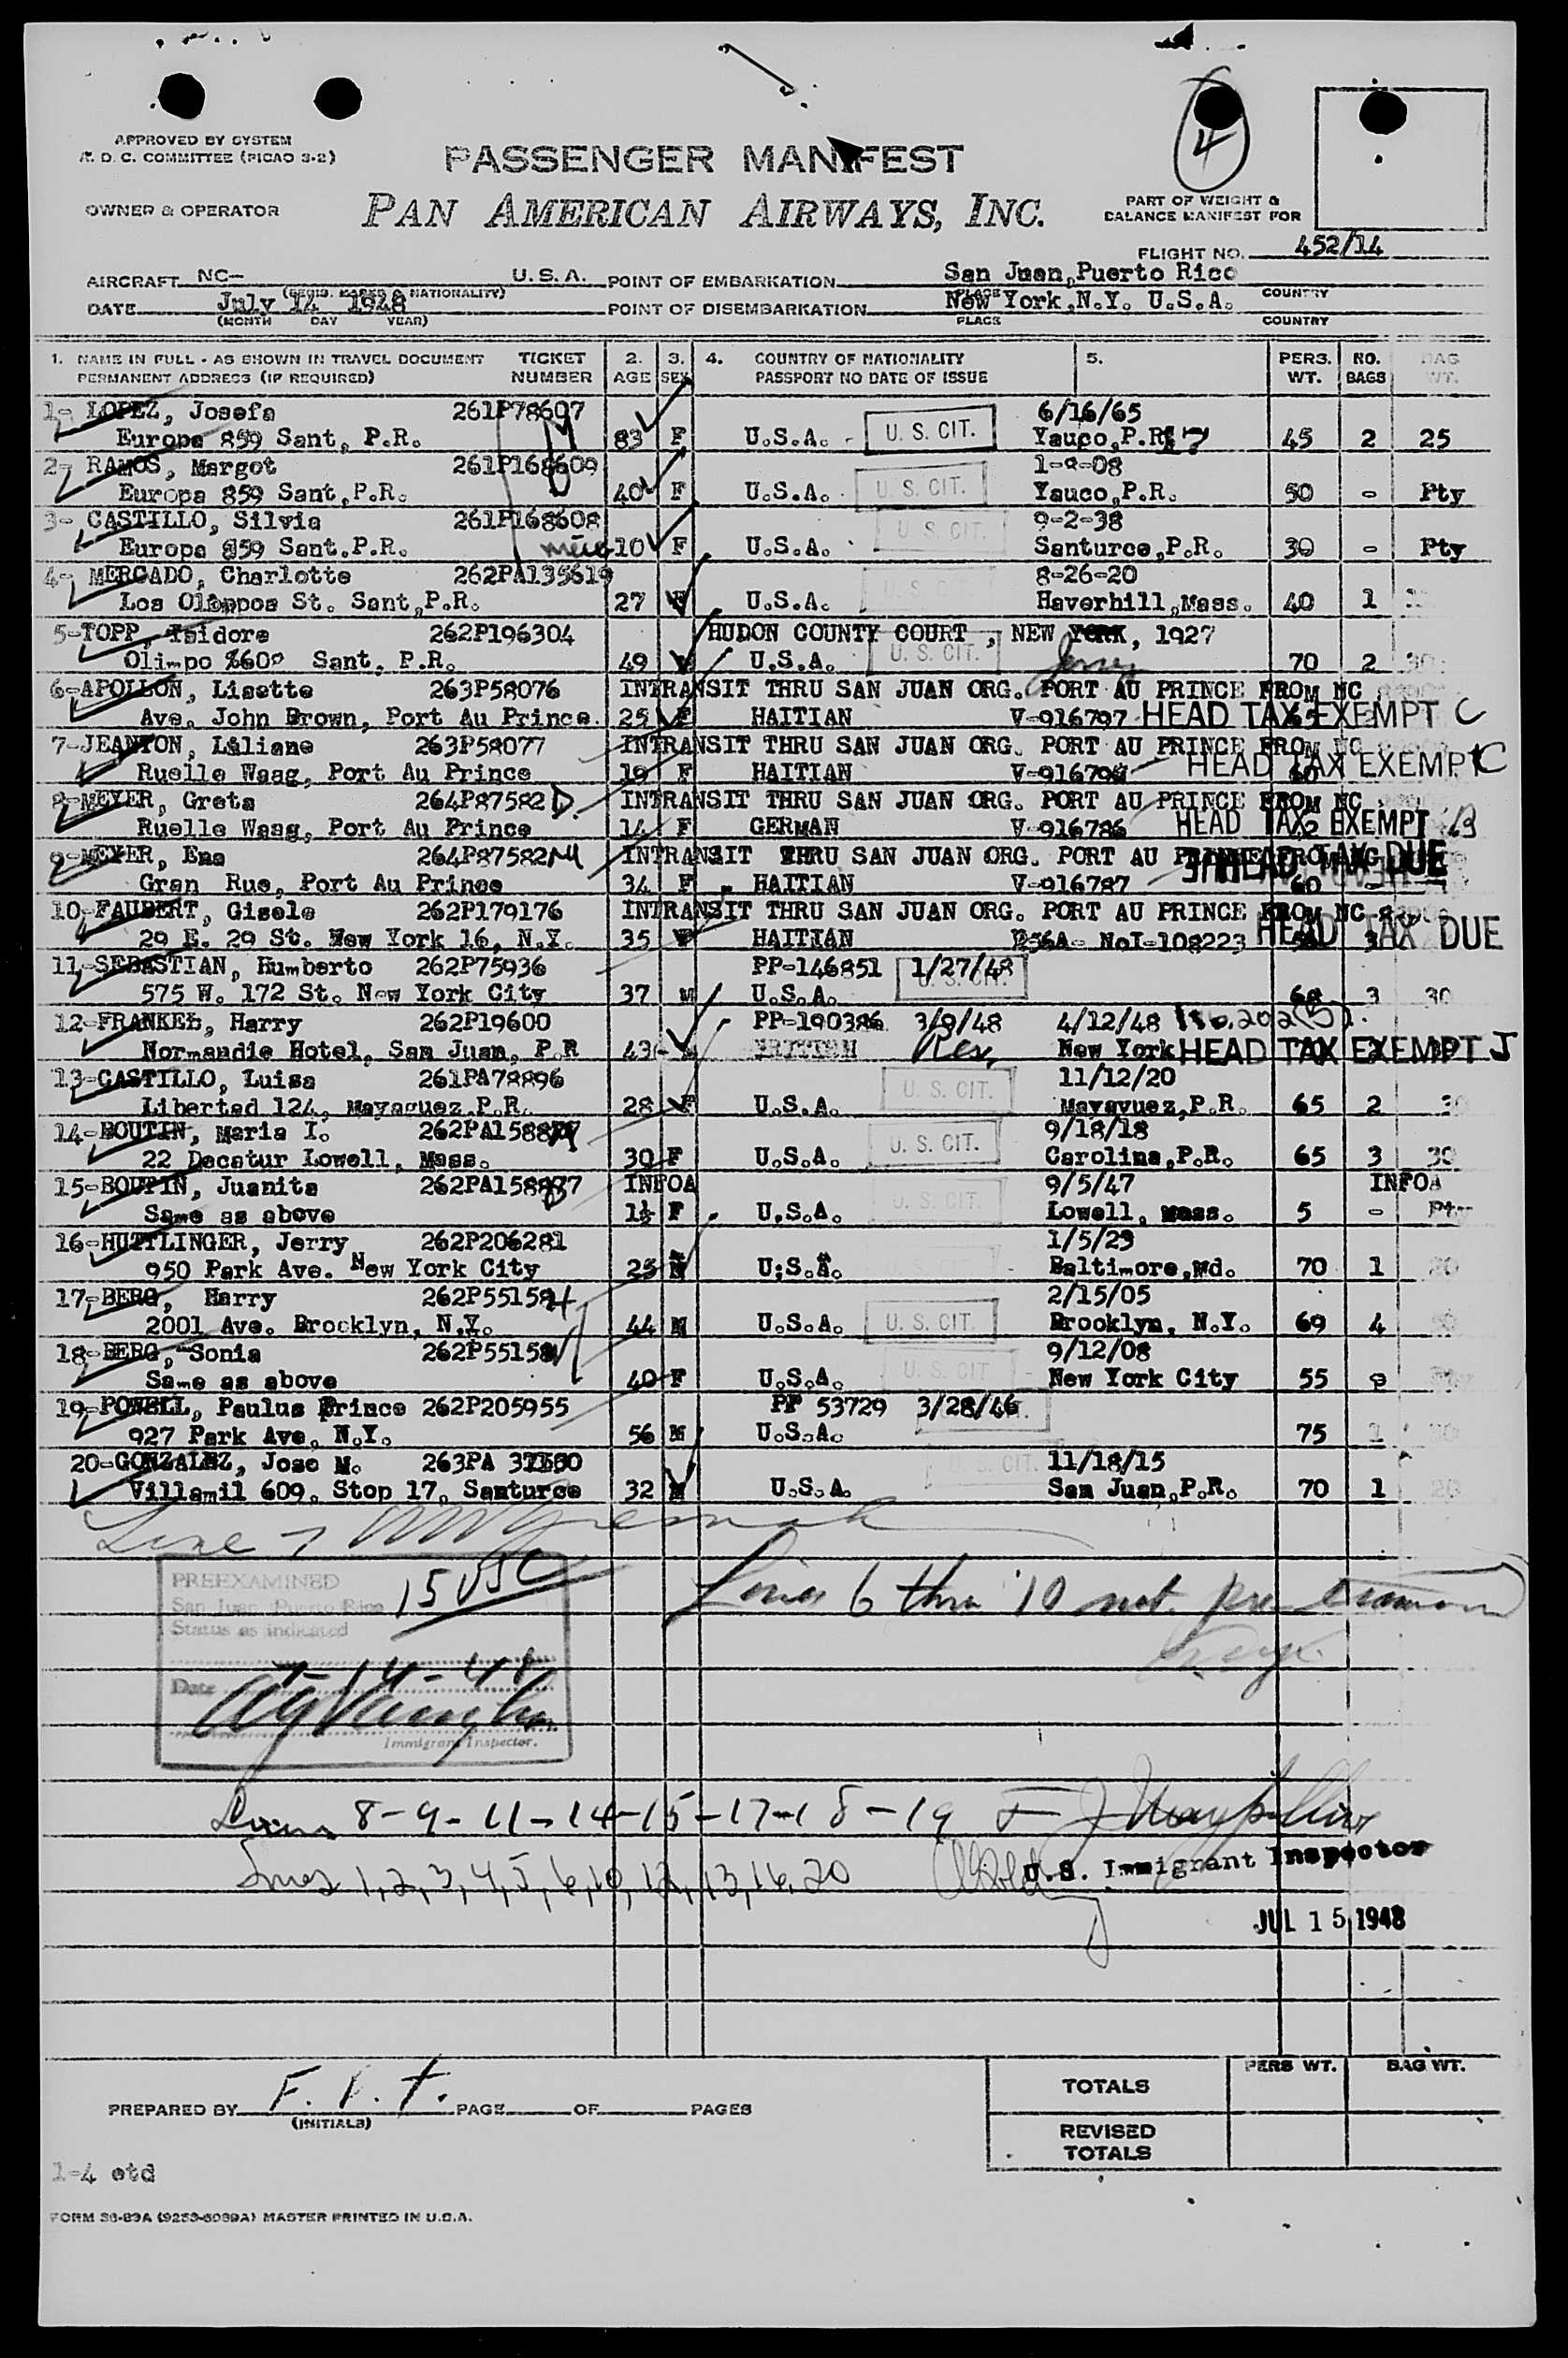 4
APPROVED BY SYSTEM
A. D. C. COMMITTEE (PICAO 3-2)
PASSENGER MANIFEST
OWNER & OPERATOR
PAN AMERICAN AIRWAYS, INC.
PART OF WEIGHT &
BALANCE MANIFEST FOR
FLIGHT NO. 452/14
AIRCRAFT NC- U.S.A. POINT OF EMBARKATION San Juan, Puerto Rico
(REGIS. MARKS & NATIONALITY) PLACE COUNTRY
DATE July 14 1948 POINT OF DISEMBARKATION New York, N.Y. U.S.A.
(MONTH DAY YEAR) PLACE COUNTRY
1. NAME IN FULL - AS SHOWN IN TRAVEL DOCUMENT TICKET 2. 3. 4. COUNTRY OF NATIONALITY 5. PERS. NO. BAG
PERMANENT ADDRESS (IF REQUIRED) NUMBER AGE SEX PASSPORT NO DATE OF ISSUE WT. BAGS WT.
1- LOPEZ, Josefa 261P78607 6/16/65
Europa 859 Sant, P.R. 83 F U.S.A. U. S. CIT. Yauco, P.R. 45 2 25
2- RAMOS, Margot 261P168609 1-9-08
Europa 859 Sant, P.R. 40 F U.S.A. U. S. CIT. Yauco, P.R. 50 - Pty
3- CASTILLO, Silvia 261P168608 9-2-38
Europa 859 Sant. P.R. 10 F U.S.A. U. S. CIT. Santurce, P.R. 30 - Pty
4- MERCADO, Charlotte 262PA135619 8-26-20
Los St. Sant, P.R. 27 F U.S.A. U. S. CIT. Haverhill, Mass. 40 1
5-TOPP, Isidore 262P196304 HUDON COUNTY COURT, NEW YORK, 1927
Olimpo Sant. P.R. 49 U.S.A. U. S. CIT. Jersey 70 2 30
6-APOLLON, Lisette 263P58076 INTRANSIT THRU SAN JUAN ORG. PORT AU PRINCE FROM NC
Ave. John Brown, Port Au Prince. 25 F HAITIAN V-916797 HEAD TAX EXEMPT C
7-JEANTON, Liliane 263P58077 INTRANSIT THRU SAN JUAN ORG. PORT AU PRINCE FROM NC
Ruelle Waag, Port Au Prince 19 F HAITIAN HEAD TAX EXEMPT C
8-MEYER, Greta 264P87582 D. INTRANSIT THRU SAN JUAN ORG. PORT AU PRINCE FROM NC
Ruelle Waag, Port Au Prince 14 F GERMAN V-916786 HEAD TAX EXEMPT B
9-MEYER, Ena 264P87582M INTRANSIT THRU SAN JUAN ORG. PORT AU HEAD TAX DUE
Gran Rue, Port Au Prince 34 F HAITIAN V-916787 60
10-FAUBERT, Gisele 262P179176 INTRANSIT THRU SAN JUAN ORG. PORT AU PRINCE FROM NC
29 E. 29 St. New York 16, N.Y. 35 F HAITIAN NoI-108223 HEAD TAX DUE
11-SEBASTIAN, Humberto 262P75936 PP-146851 1/27/48
575 W. 172 St. New York City 37 M U.S.A. U. S. CIT. 68 3 30
12-FRANKEL, Harry 262P19600 PP-190386 3/9/48 4/12/48
Normandie Hotel, San Juan, P.R 43 BRITISH Res. New York HEAD TAX EXEMPT J
13-CASTILLO, Luisa 261PA78896 U. S. CIT. 11/12/20
Libertad 124, Mayaguez, P.R. 28 F U.S.A. Mayavuez, P.R. 65 2 30
14-BOUTIN, Maria I. 9/18/18
22 Decatur Lowell, Mass. 30 F U.S.A. U. S. CIT. Carolina, P.R. 65 3 30
15-BOUTIN, Juanita INFOA 9/5/47 INFOA
Same as above 1½ F U.S.A. U. S. CIT. Lowell, Mass. 5 - Pty
16-HUTTLINGER, Jerry 262P206281 1/5/23
950 Park Ave. New York City 25 M U.S.A. Baltimore, Md. 70 1 20
17-BERG, Harry 2/15/05
2001 Ave. Brooklyn, N.Y. 44 M U.S.A. U. S. CIT. Brooklyn, N.Y. 69 4
18-BERG, Sonia 9/12/08
Same as above 40 F U.S.A. U. S. CIT. New York City 55
19-POWELL, Paulus Prince 262P205955 PP 53729 3/28/46
927 Park Ave. N.Y. 56 M U.S.A. 75
20-GONZALEZ, Jose M. 263PA U. S. CIT. 11/18/15
Villamil 609, Stop 17, Santurce 32 M U.S.A. San Juan, P.R. 70 1 20
Line 7
PREEXAMINED 15 USC
San Juan Puerto Rico
Status as indicated
Lines 6 thru 10 not pre-examined
Date 7-14-48
Immigrant Inspector.
Lines 8-9-11-14-15-17-18-19
Lines 1,2,3,4,5,6,10,12,13,16,20
U.S. Immigrant Inspector
JUL 15 1948
PERS WT. BAG WT.
TOTALS
PREPARED BY F. PAGE OF PAGES
(INITIALS)
REVISED
TOTALS
1-4 otd
FORM MASTER PRINTED IN U.S.A.